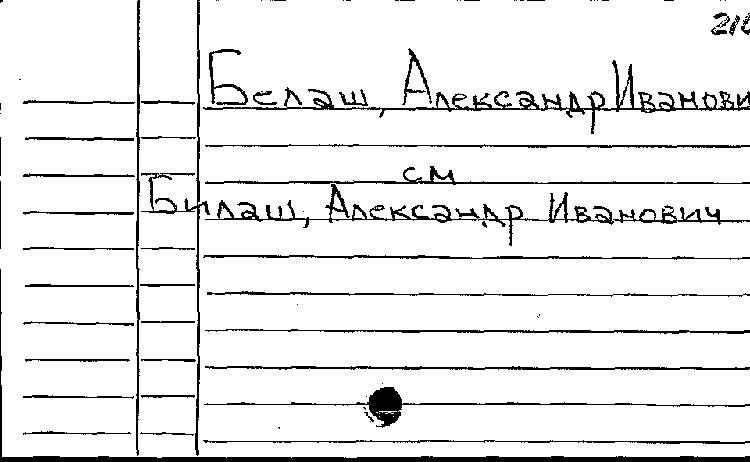 Белаш, Александр Иванови
см
Билаш, Александр Иванович